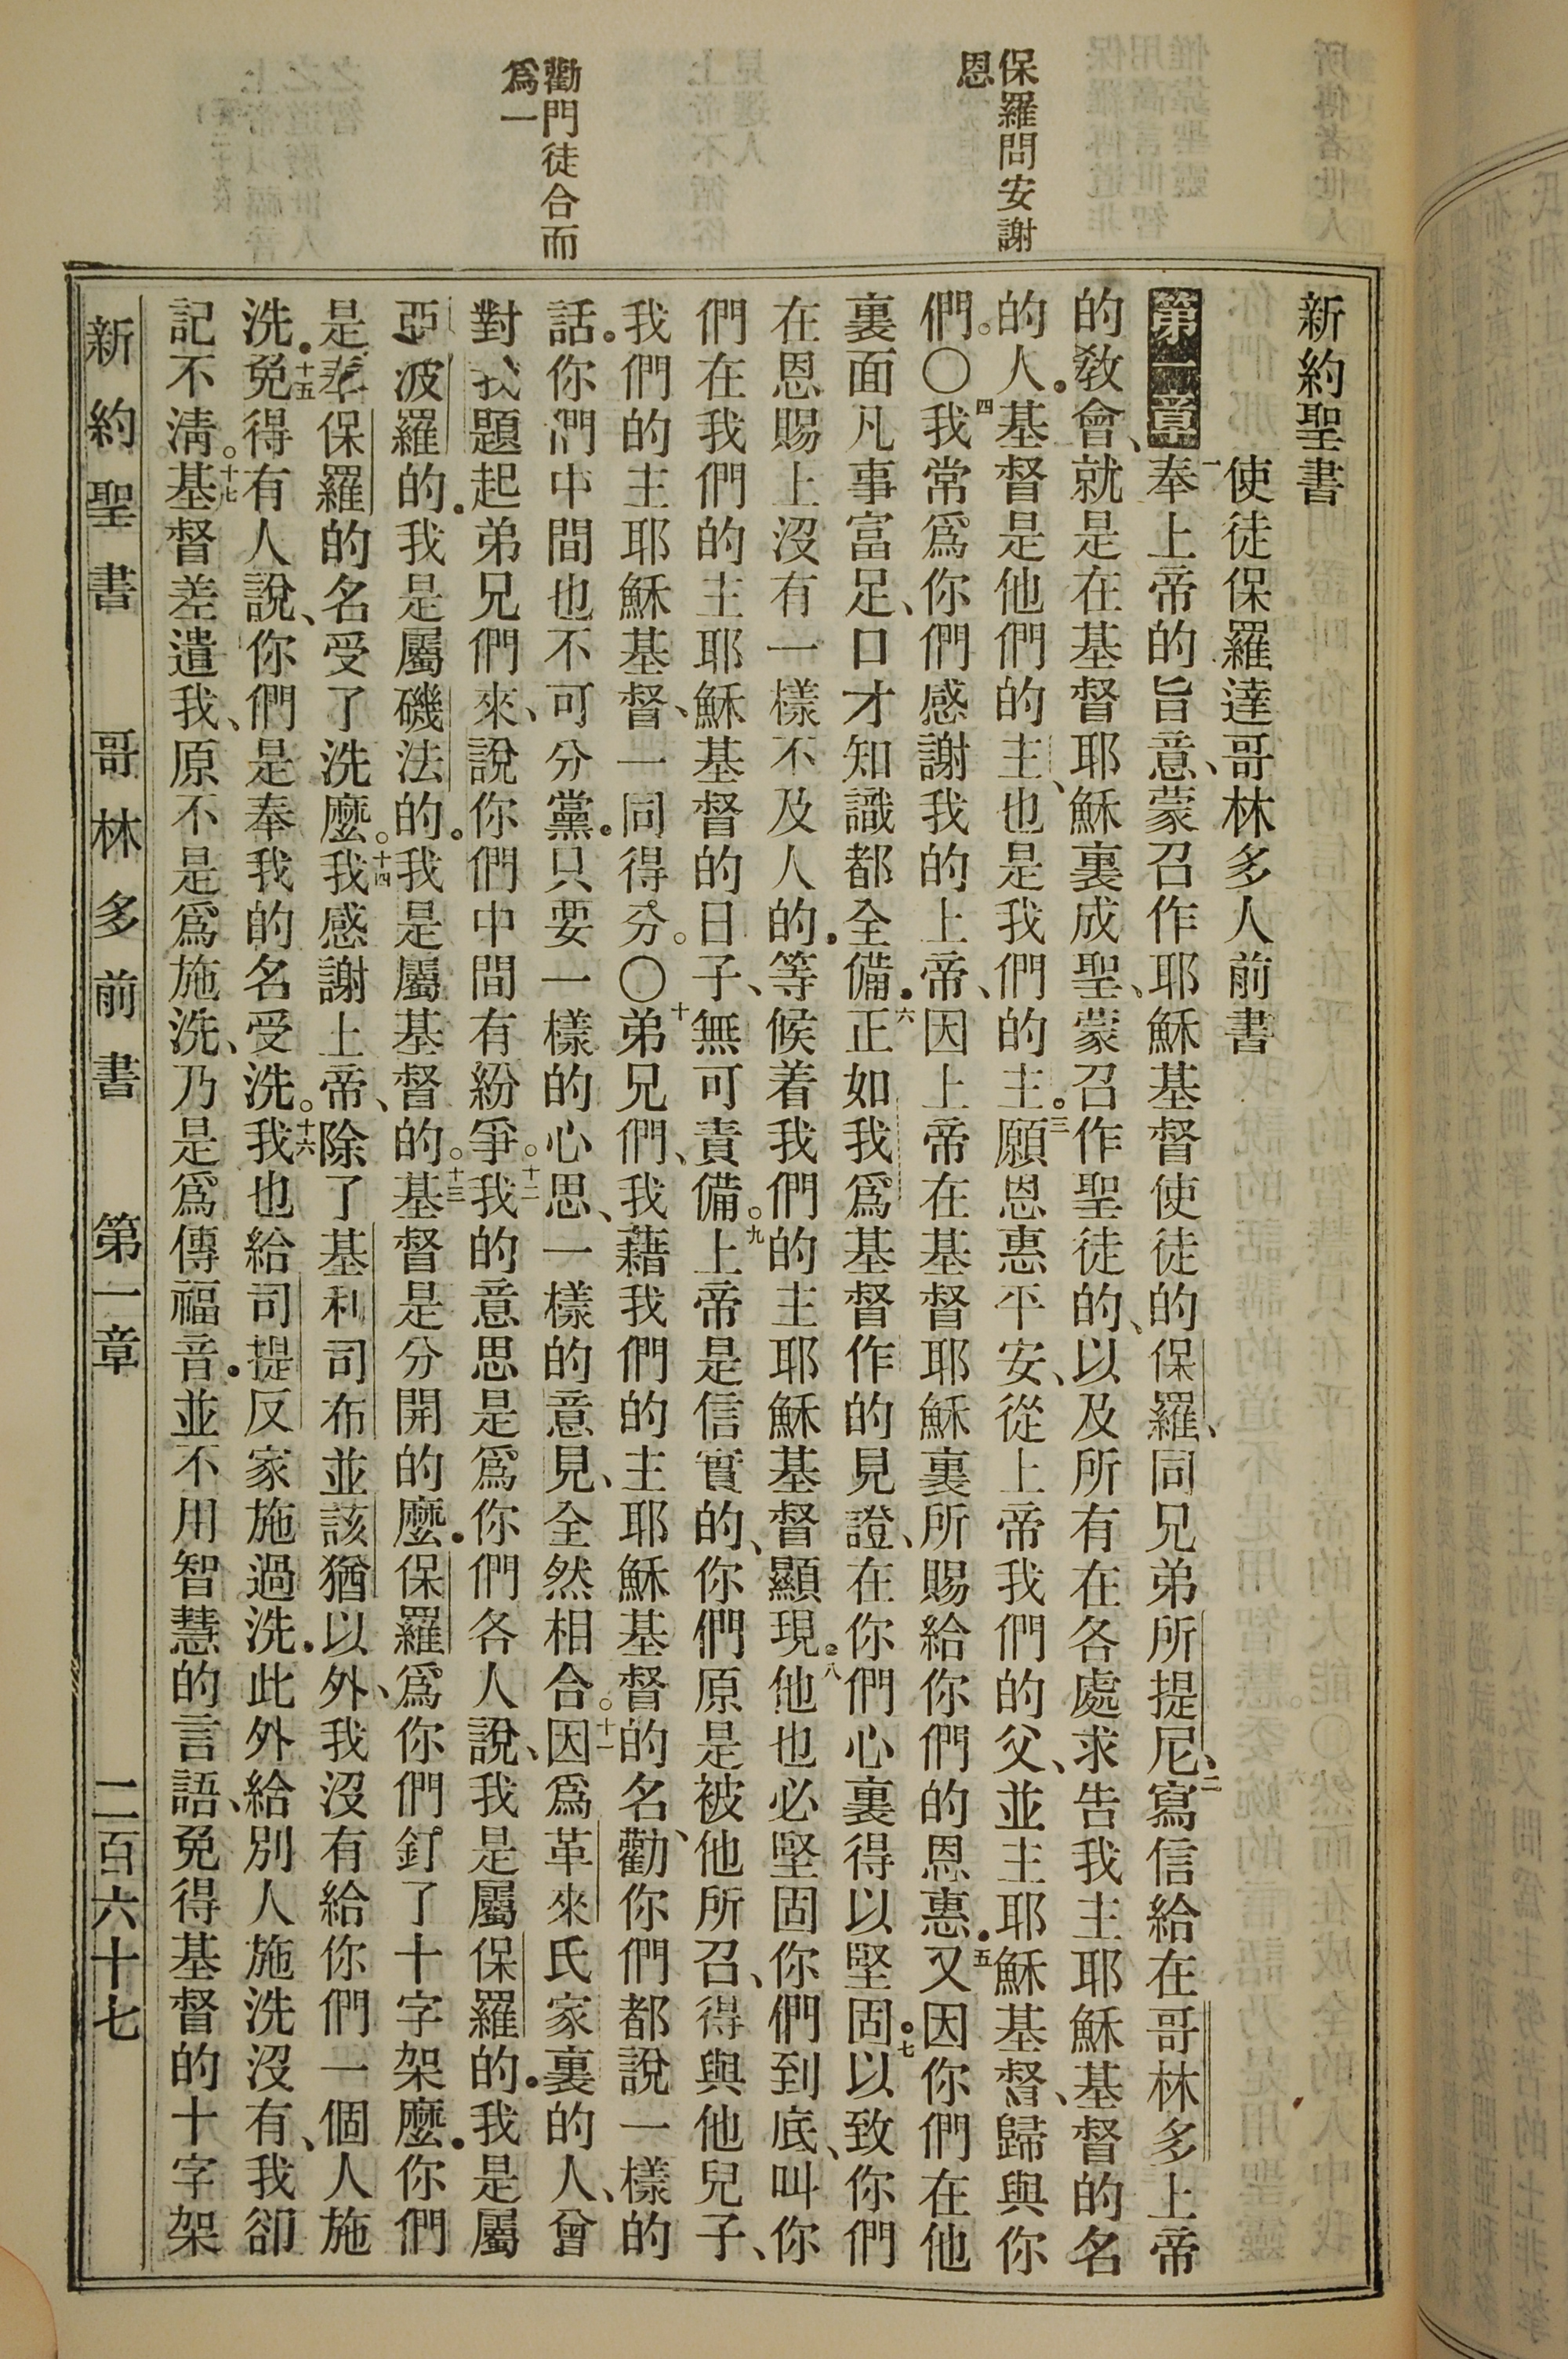 保羅問安謝
恩
勸門徒合而
爲一
新約聖書
使徒保羅達哥林多人前書
第一章 一奉上帝的旨意、蒙召作耶穌基督使徒的保羅、同兄弟所提尼、二寫信給在哥林多上帝
的敎會、就是在基督耶穌裏成聖、蒙召作聖徒的、以及所有在各處求告我主耶穌基督的名
的人．基督是他們的主、也是我們的主．三願恩惠平安、從上帝我們的父、並主耶穌基督、歸與你
們。○四我常爲你們感謝我的上帝、因上帝在基督耶穌裏所賜給你們的恩惠．五又因你們在他
裏面凡事富足、口才知識都全備．六正如我爲基督作的見證、在你們心裏得以堅固．七以致你們
在恩賜上沒有一樣不及人的．等候着我們的主耶穌基督顯現．八他也必堅固你們到底、叫你
們在我們的主耶穌基督的日子、無可責備。九上帝是信實的、你們原是被他所召、得與他兒子、
我們的主耶穌基督、一同得分。○十弟兄們、我藉我們的主耶穌基督的名、勸你們都說一樣的
話．你們中間也不可分黨．只要一樣的心思、一樣的意見、全然相合。十一因爲革來氏家裏的人、曾
對我題起弟兄們來、說你們中間有紛爭。十二我的意思是爲你們各人說、我是屬保羅的．我是屬
亞波羅的．我是屬磯法的．我是屬基督的。十三基督是分開的麼．保羅爲你們釘了十字架麼．你們
是奉保羅的名受了洗麼。十四我感謝上帝、除了基利司布並該猶以外、我沒有給你們一個人施
洗．十五免得有人說、你們是奉我的名受洗。十六我也給司提反家施過洗．此外給別人施洗沒有、我卻
記不淸。十七基督差遣我、原不是爲施洗、乃是爲傳福音．並不用智慧的言語、免得基督的十字架
新約聖書 哥林多前書 第一章 二百六十七